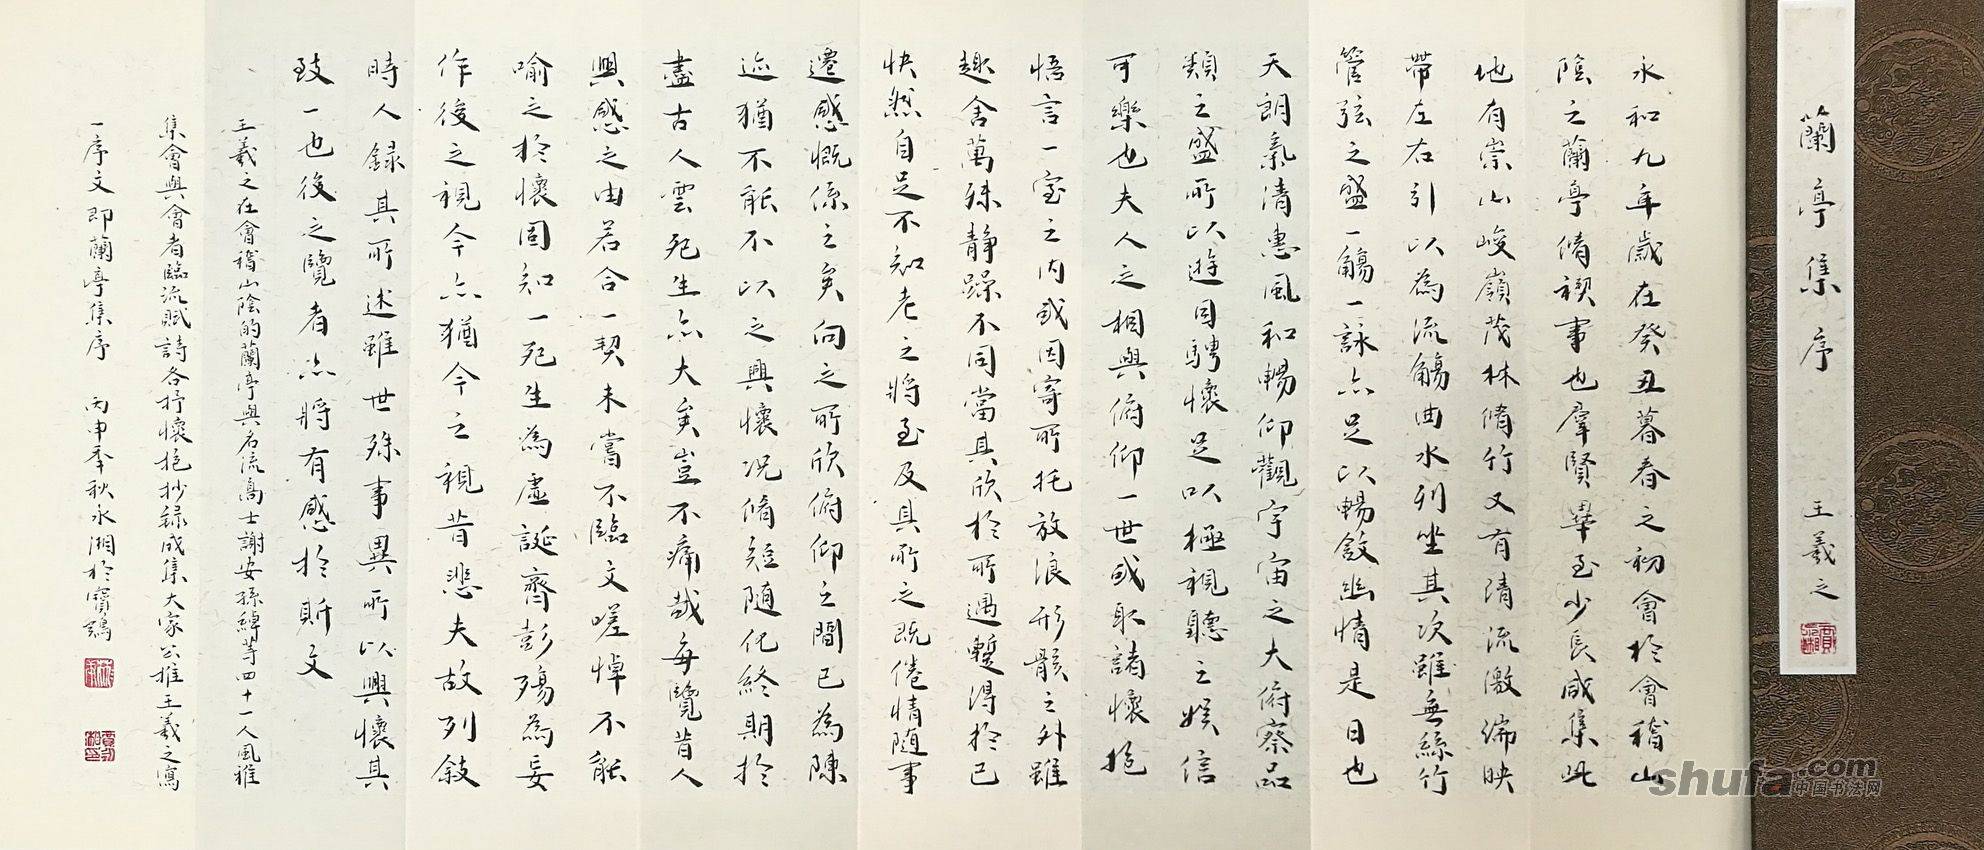 蘭亭集序 王羲之
永和九年歲在癸丑暮春之初會於會稽山
陰之蘭亭脩禊事也羣賢畢至少長咸集此
地有崇山峻嶺茂林脩竹又有清流激湍映
帶左右引以為流觴曲水列坐其次雖無絲竹
管弦之盛一觴一詠亦足以暢敘幽情是日也
天朗氣清惠風和暢仰觀宇宙之大俯察品
類之盛所以遊目騁懷足以極視聽之娛信
可樂也夫人之相與俯仰一世或取諸懷抱
悟言一室之內或因寄所托放浪形骸之外雖
趣舍萬殊靜躁不同當其欣於所遇暫得於己
快然自足不知老之將至及其所之既倦情隨事
遷感慨係之矣向之所欣俯仰之間已為陳
迹猶不能不以之興懷況脩短隨化終期於
盡古人雲死生亦大矣豈不痛哉每覽昔人
興感之由若合一契未嘗不臨文嗟悼不能
喻之於懷固知一死生為虛誕齊彭殤為妄
作後之視今亦猶今之視昔悲夫故列敘
時人錄其所述雖世殊事異所以興懷其
致一也後之覽者亦將有感於斯文
王羲之在會稽山陰的蘭亭與名流高士謝安孫綽等四十一人風雅
集會與會者臨流賦詩各抒懷抱抄錄成集大家公推王羲之寫
一序文即蘭亭集序 丙申年秋永湘於寶
shufa.com
中国书法网